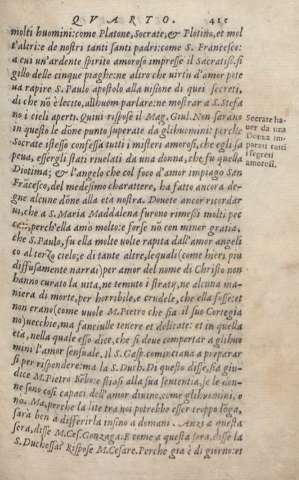 QVARTO. 415
molti huomini: come Platone, Socrate, & Plotino, et mol
t'altri: e de nostri tanti santi padri: come S. Francesco:
a cui un'ardente spirito amoroso impresse il Sacratiss. si
gillo delle cinque piaghe: ne altro che uirtu d'amor pote
ua rapire S. Paulo apostolo alla uisione di quei secreti,
di che nō è lecito, allhuom parlare: ne mostrar a S. Stefa
no i cieli aperti. Quiui rispose il Mag. Giul. Non sarāno
in questo le dōne punto superate da gli huomini: perche
Socrate istesso confessa tutti i misteri amorosi, che egli sa
peua, essergli stati riuelati da una donna, che fu quella
Diotima; & l'angelo che col foco d'amor impiago San
Frācesco, del medesimo charattere, ha fatto ancora de-
gne alcune dōne alla età nostra. Douete ancor ricordar
ui, che a S. Maria Maddalena furono rimessi molti pec
cati, perch'ella amò molto: e forse nō con minor gratia,
che S. Paulo, fu ella molte uolte rapita dall'amor angeli
co al terzo cielo; e di tante altre, lequali (come hieri piu
diffusamente narrai) per amor del nome di Christo non
hanno curato la uita, ne temuto i stratij, ne alcuna ma-
niera di morte, per horribile, e crudele, che ella fosse: et
non erano (come uuole M. Pietro che sia il suo Cortegia
no) uecchie, ma fanciulle tenere et delicate: et in quella
età, nella quale esso dice, che si deue comportar a gli huo
mini l'amor sensuale. Il S. Gasp. cominciaua a preparar
si per rispondere: ma la S. Duch. Di questo disse, sia giu-
dice M. Pietro Bembo: et stiasi alla sua sententia, se le don-
ne sono cosi capaci dell'amor diuino, come gli huomini, o
no. Ma, perche la lite tra uoi potrebbe esser troppo lōga,
sarà ben a differirla insino a domani. Anzi a questa
sera, disse M. Ces. Gonzaga. E come a questa sera, disse la
S. Duchessa? Rispose M. Cesare. Perche gia è di giorno: et
Socrate ha-
uer da una
Donna im-
parati tutti
i segreti
amorosi.